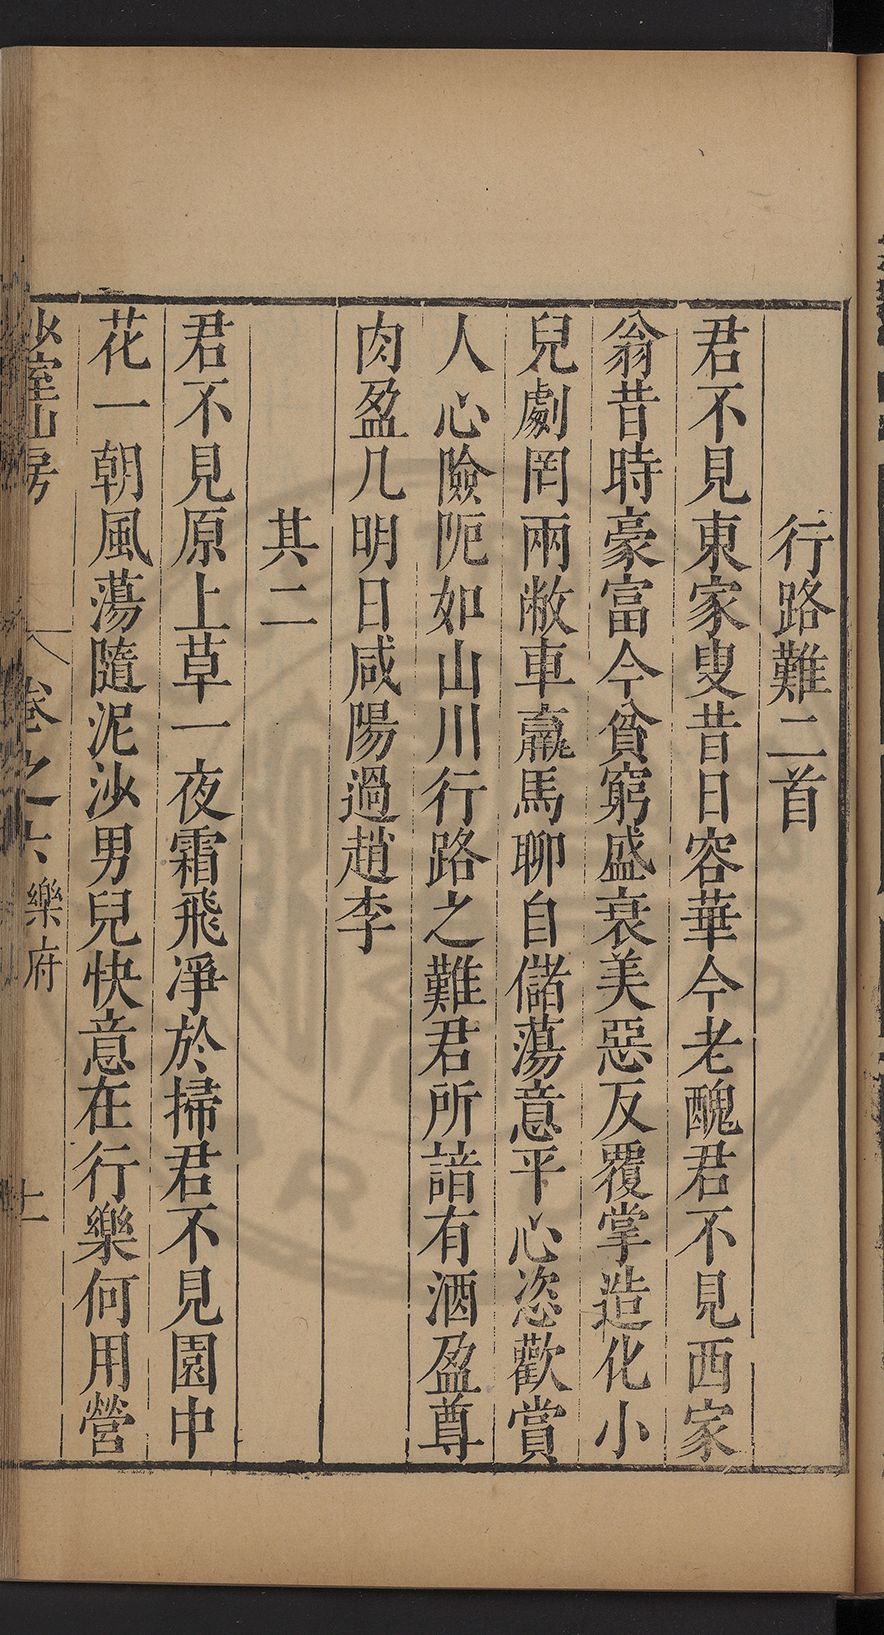 行路難二首
君不見東家叟昔日容華今老醜君不見西家
翁昔時豪富今貧窮盛衰美惡反覆掌造化小
兒劇罔兩敝車羸馬聊自儲蕩意平心恣歡賞
人心險阨如山川行路之難君所諳有酒盈尊
肉盈几明日咸陽過趙李
其二
君不見原上草一夜霜飛凈於掃君不見園中
花一朝風蕩隨泥沙男兒快意在行樂何用營
少室山房
卷之六 樂府